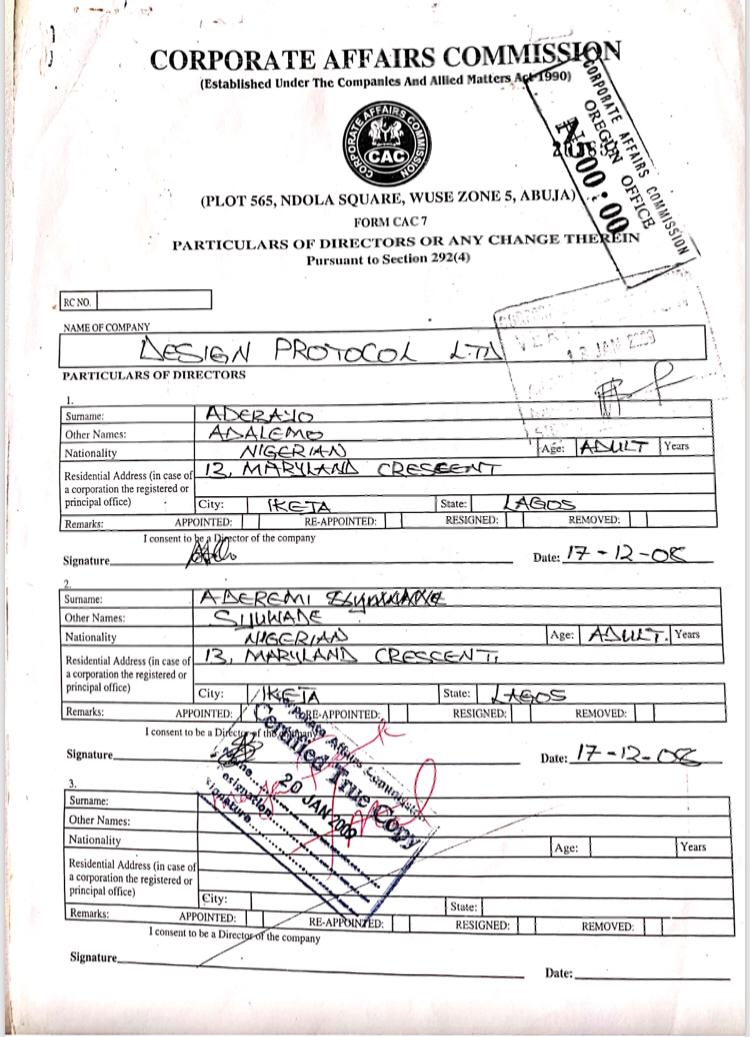 CORPORATE AFFAIRS COMMISSION
(Established Under The Companies And Allied Matters Act 1990)
CORPORATE AFFAIRS COMMISSION
CAC
CORPORATE AFFAIRS COMMISSION
OREGUN OFFICE
N500:00
(PLOT 565, NDOLA SQUARE, WUSE ZONE 5, ABUJA)
FORM CAC 7
PARTICULARS OF DIRECTORS OR ANY CHANGE THEREIN
Pursuant to Section 292(4)
RC NO.
NAME OF COMPANY
DESIGN PROTOCOL LTD
JAN
PARTICULARS OF DIRECTORS
1.
Surname: ADERAYO
Other Names: ADALEMO
Nationality NIGERIAN Age: ADULT Years
Residential Address (in case of a corporation the registered or principal office) 13, MARYLAND CRESCENT
City: IKEJA State: LAGOS
Remarks: APPOINTED: RE-APPOINTED: RESIGNED: REMOVED:
I consent to be a Director of the company
Signature Date: 17-12-08
2.
Surname: ADEREMI
Other Names: SIJUWADE
Nationality NIGERIAN Age: ADULT. Years
Residential Address (in case of a corporation the registered or principal office) 13, MARYLAND CRESCENT,
City: IKEJA State: LAGOS
Remarks: APPOINTED: RE-APPOINTED: RESIGNED: REMOVED:
I consent to be a Director of the company
Signature Date: 17-12-08
Corporate Affairs Commission
Certified True Copy
20 JAN 2009
Name
Designation
Signature
3.
Surname:
Other Names:
Nationality Age: Years
Residential Address (in case of a corporation the registered or principal office)
City: State:
Remarks: APPOINTED: RE-APPOINTED: RESIGNED: REMOVED:
I consent to be a Director of the company
Signature Date: